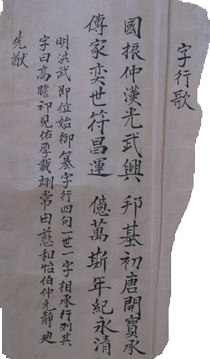 字行歌
國振仲漢光武興 邦基初唐開寶承
傳家奕世符昌運 億萬斯年紀永清
明洪武即位始御篆字行四句一世一字相承行列其
字曰高瞻祁見佑厚載翊常由慈和怡伯仲先靜迪
先猷